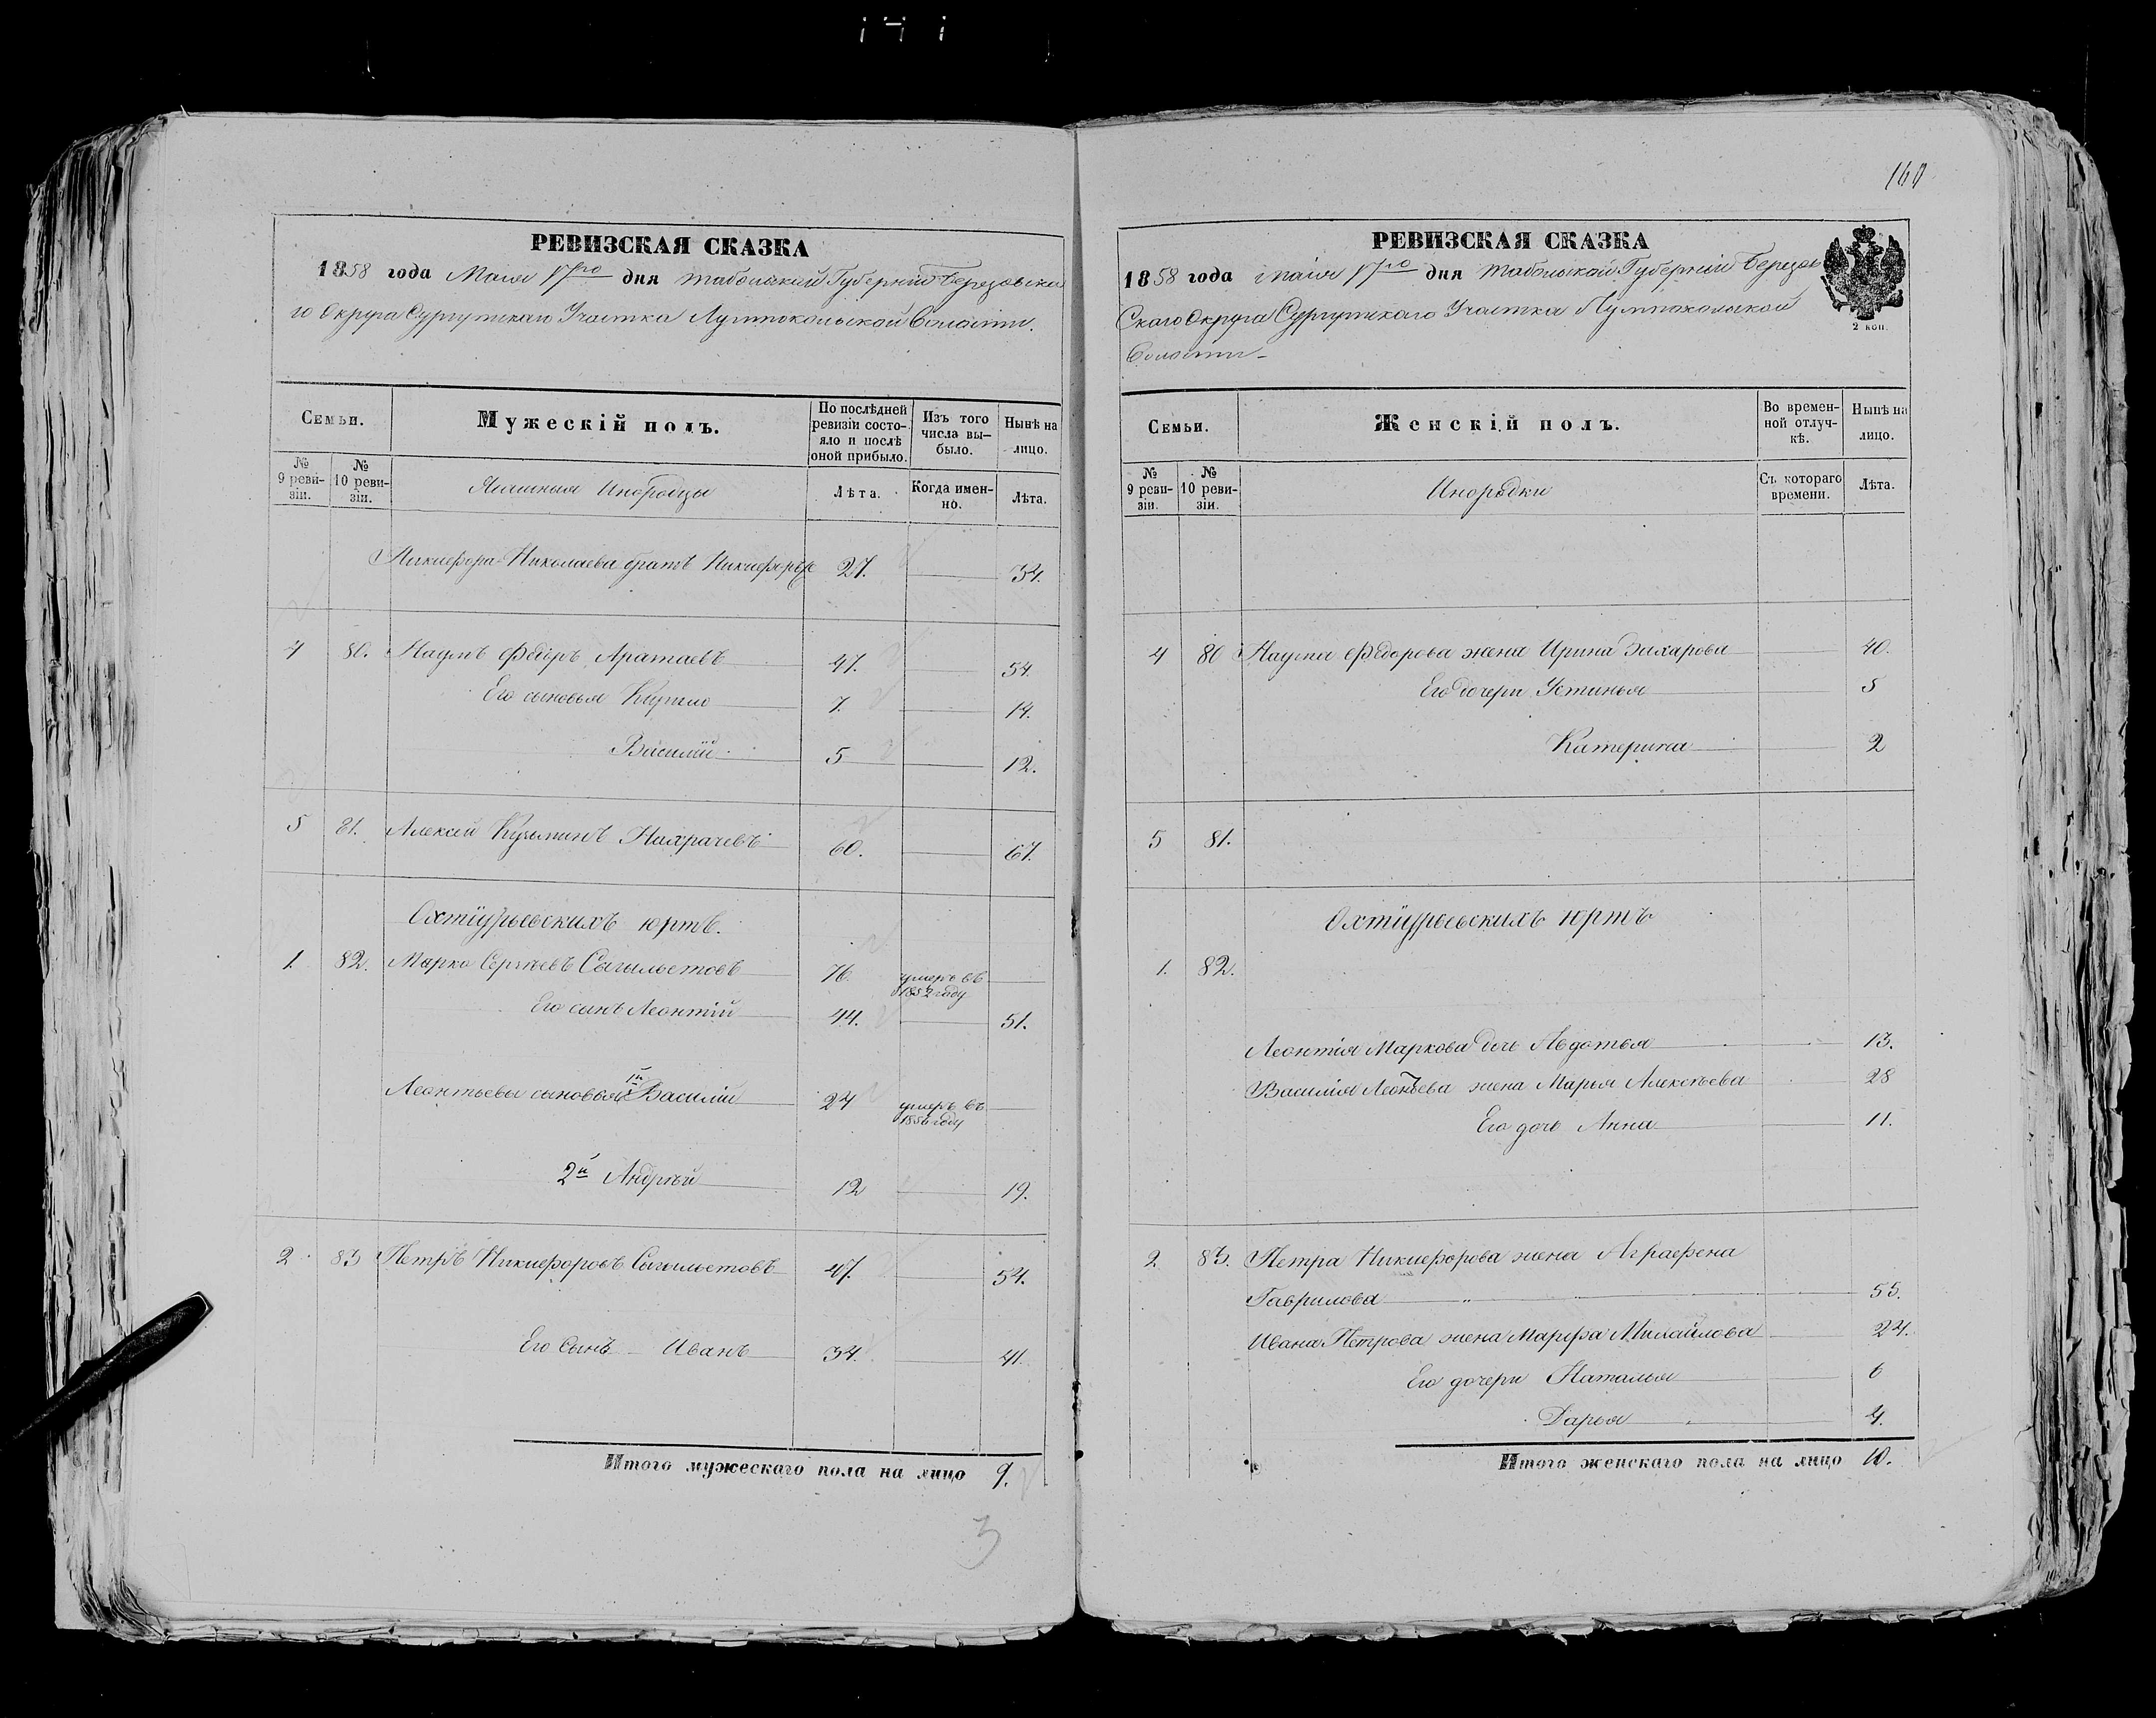 160
РЕВИЗСКАЯ СКАЗКА
1858 года Маія 17го дня Тобольской Губерніи Березовска
го Округа Сургутскаго Участка Лумпокольской Волости.
Семьи.
Мужескій полъ.
По послѣдней ревизіи состо-
яло и послѣ оной прибыло.
Изъ того числа вы-
было.
Нынѣ на лицо.
№ 9 реви-
зіи.
№ 10 реви-
зіи.
Ясашныя Инородцы
Лѣта.
Когда имен-
но.
Лѣта.
Никифора Николаева братъ Никифоръ 27. 34.
4 80. Наумъ Федоръ Аратаевъ 47. 54.
Его сыновья Кирило 7. 14.
Василій 5 12.
5 81. Алексей Кузминъ Нахрачевъ 60. 67.
Охтіурьевскихъ юртъ.
1. 82. Марко Сергѣевъ Сигильетовъ 76. умеръ въ
1852 году
Его сынъ Леонтій 44. 51.
Леонтьевы сыновья 1й Василій 24 умеръ въ
1856 году
2й Андрѣй 12 19.
2 83 Петръ Никифоровъ Сигильетовъ 47. 54.
Его Сынъ Иванъ 34. 41.
Итого мужескаго пола на лицо 9.
3
РЕВИЗСКАЯ СКАЗКА
1858 года маія 17го дня Тобольской Губерніи Березов
Скаго Округа Сургутскаго Участка Лумпокольской
Волости
2 коп.
Семьи.
Женскій полъ.
Во времен-
ной отлуч-
кѣ.
Нынѣ на лицо.
№ 9 реви-
зіи.
№ 10 реви-
зіи.
Инородки
Съ котораго времени.
Лѣта.
4 80 Наума Федорова жена Ирина Захарова 40.
Его дочери Устинья 5
Катерина 2
5 81.
Охтіурьевскихъ юртъ
1. 82.
Леонтія Маркова дочь Авдотья 13.
Василія Леонтьева жена Марья Алексѣева 28
Его дочь Анна 11.
2. 83. Петра Никифорова жена Аграфена
Гаврилова 55.
Ивана Петрова жена Марфа Михайлова 24.
Его дочери Наталья 6
Дарья 4.
Итого женскаго пола на лицо 10.